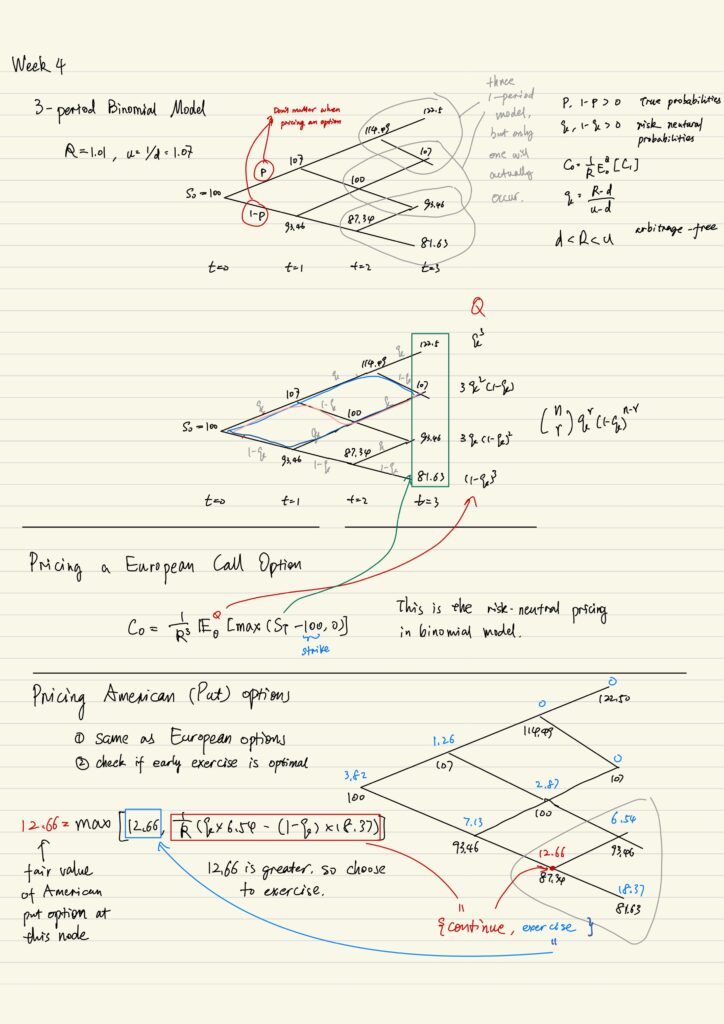 Week 4
3-period Binomial Model
R=1.01, u=1/d=1.07
Don't matter when
pricing an option
three
1-period
model,
but only
one will
actually
occur.
P, 1-P>0 True probabilities
q, 1-q>0 risk neutral
probabilities
C₀=1/R E₀^Q[C₁]
q = R-d / u-d
d<R<u arbitrage-free
122.5
114.49
107
107
P
S₀=100
100
1-P
93.46
93.46
87.34
81.63
t=0 t=1 t=2 t=3
Q
122.5 q³
q
114.49
q 1-q
107 107 3q²(1-q)
q 1-q q
S₀=100 100
(n r) q^r (1-q)^(n-r)
1-q q
93.46 93.46 3q(1-q)²
87.34 q
1-q 1-q
81.63 (1-q)³
t=0 t=1 t=2 t=3
Pricing a European Call Option
Q
C₀ = 1/R³ E₀^Q [max(S_T -100, 0)]
strike
This is the risk-neutral pricing
in binomial model.
Pricing American (Put) options
① same as European options
② check if early exercise is optimal
0
122.50
0
114.49
1.26
107
0
107
3.82
100
2.87
100
7.13
93.46
6.54
93.46
12.66
87.34
18.37
81.63
12.66 = max [12.66, 1/R (q×6.54 - (1-q)×18.37)]
fair value
of American
put option at
this node
12.66 is greater. so choose
to exercise.
{continue, exercise}